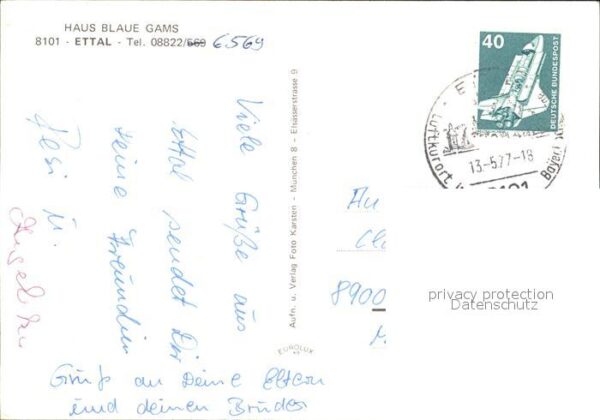 HAUS BLAUE GAMS
8101 - ETTAL - Tel. 08822/569 6569
Viele Grüße aus
Ettal sendet Dir
Deine Freundin
Resi u.
Angelika
Gruß an Deine Eltern
und deinen Bruder
Aufn. u. Verlag Foto Karsten - München 8 - Elsässerstrasse 9
EUROLUX
40
DEUTSCHE BUNDESPOST
Luftkurort
13-5.77-18
8101
Bayer.
An
8900
privacy protection
Datenschutz